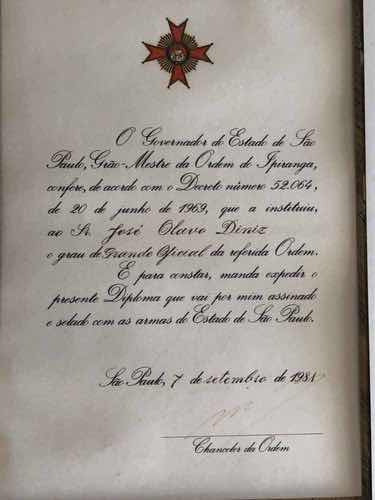 O Governador do Estado de São
Paulo, Grão-Mestre da Ordem do Ipiranga,
confere, de acordo com o Decreto número 52.064,
de 20 de junho de 1969, que a instituiu,
ao Sr. José Olavo Diniz
o grau de Grande Oficial da referida Ordem.
E para constar, manda expedir o
presente Diploma que vai por mim assinado
e selado com as armas do Estado de São Paulo.
São Paulo, 7 de setembro de
Chanceler da Ordem